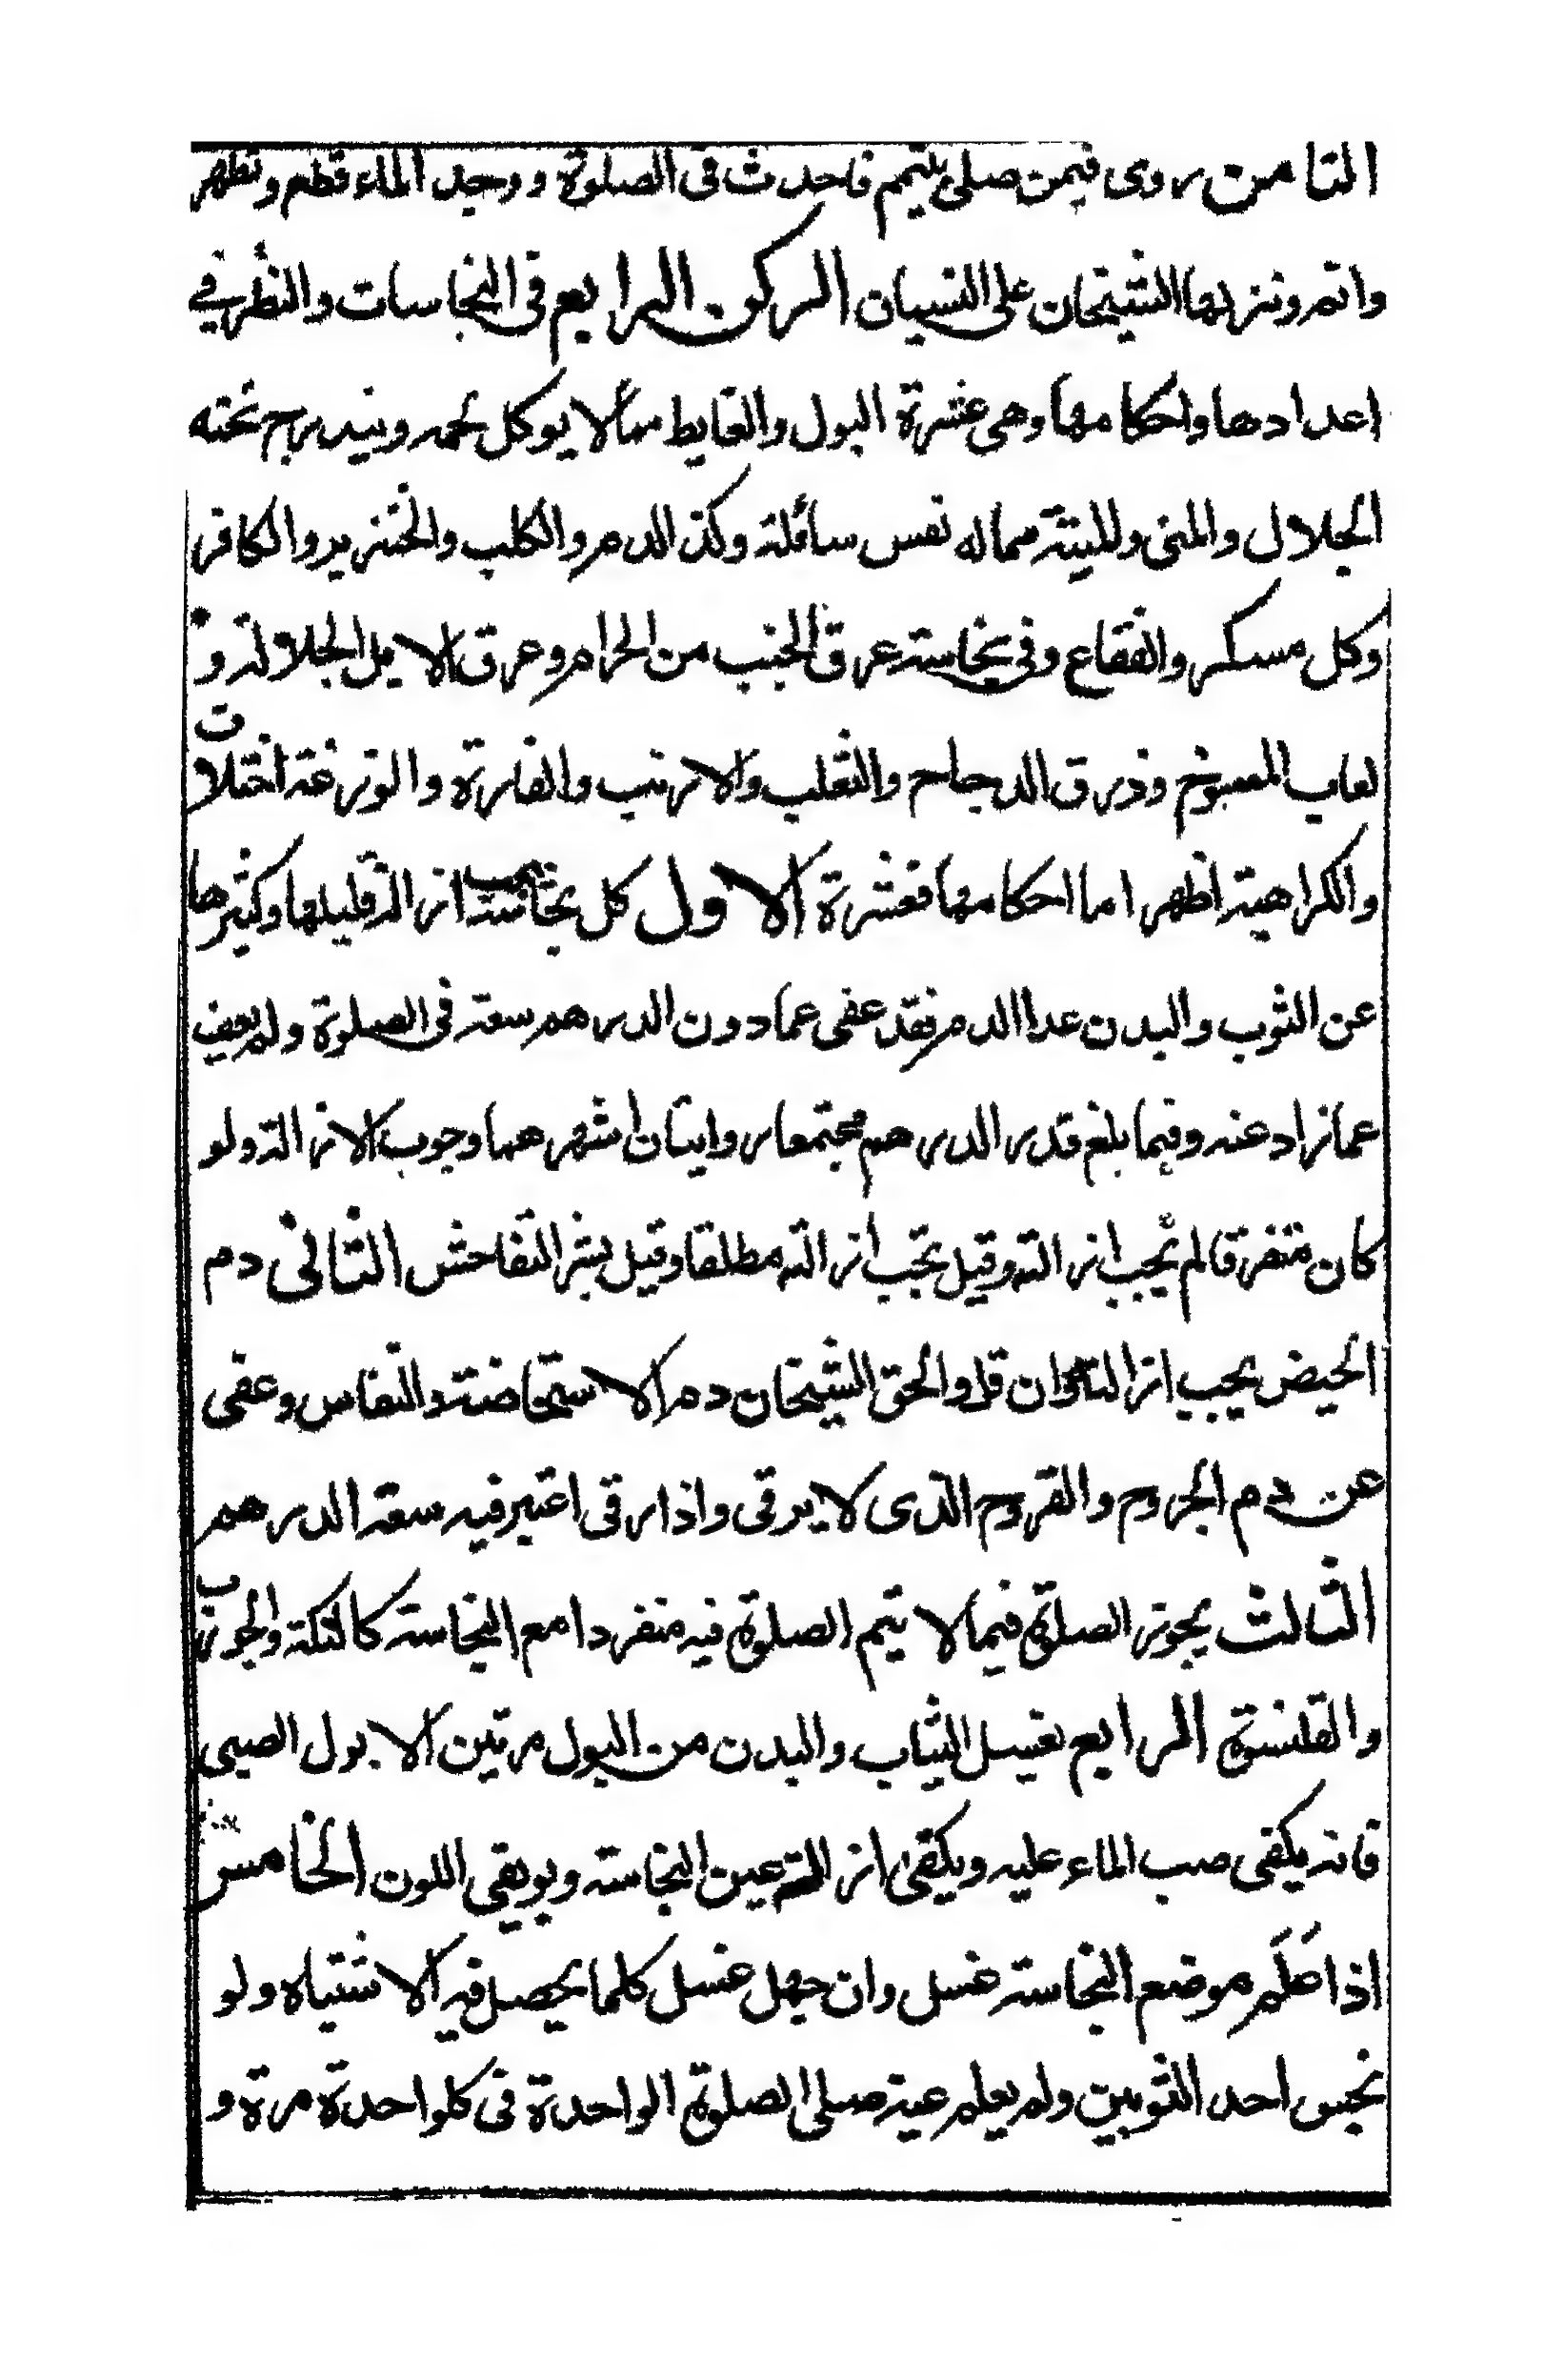 الثامن روى فيمن صلى بتيمم فاحدث فى الصلوة ووجد الماء قطع وتطهر
واتم ونزلها الشيخان على النسيان الركن الرابع فى النجاسات والنظر في
اعدادها واحكامها وهى عشرة البول والغايط مما لا يوكل لحمه ويندرج تحته
الجلال والمنى والميتة مما له نفس سائلة وكذا الدم والكلب والخنزير والكافر
وكل مسكر والفقاع وفى نجاسة عرق الجنب من الحرام وعرق الابل الجلالة و
لعاب المسوخ وذرق الدجاج والثعلب والارنب والفارة والوزغة اختلاف
والكراهية اظهر اما احكامها فعشرة الاول كل نجاسة يجب ازالة قليلها وكثيرها
عن الثوب والبدن عدا الدم فقد عفى عما دون الدرهم سعة فى الصلوة ولم يعف
عما زاد عنه وفيما بلغ قدر الدرهم مجتمعا روايتان اشهرهما وجوب الازالة ولو
كان متفرقا لم يجب ازالته وقيل تجب ازالته مطلقا وقيل بشرط التفاحش الثانى دم
الحيض يجب ازالته وان قل والحق الشيخان دم الاستحاضة والنفاس وعفى
عن دم الجروح والقروح الذى لا يرقى واذا رقى اعتبر فيه سعة الدرهم
الثالث يجوز الصلوة فيما لا يتم الصلوة فيه منفردا مع النجاسة كالتكة والجورب
والقلنسوة الرابع تغسل الثياب والبدن من البول مرتين الا بول الصبى
فانه يكفى صب الماء عليه ويكفى ازالة عين النجاسة وبو بقى اللون الخامس
اذا عَلَم موضع النجاسة غسل وان جهل غسل كلما يحصل فيه الاشتباه ولو
نجس احد الثوبين ولم يعلم عينه صلى الصلوة الواحدة فى كل واحدة مرة و